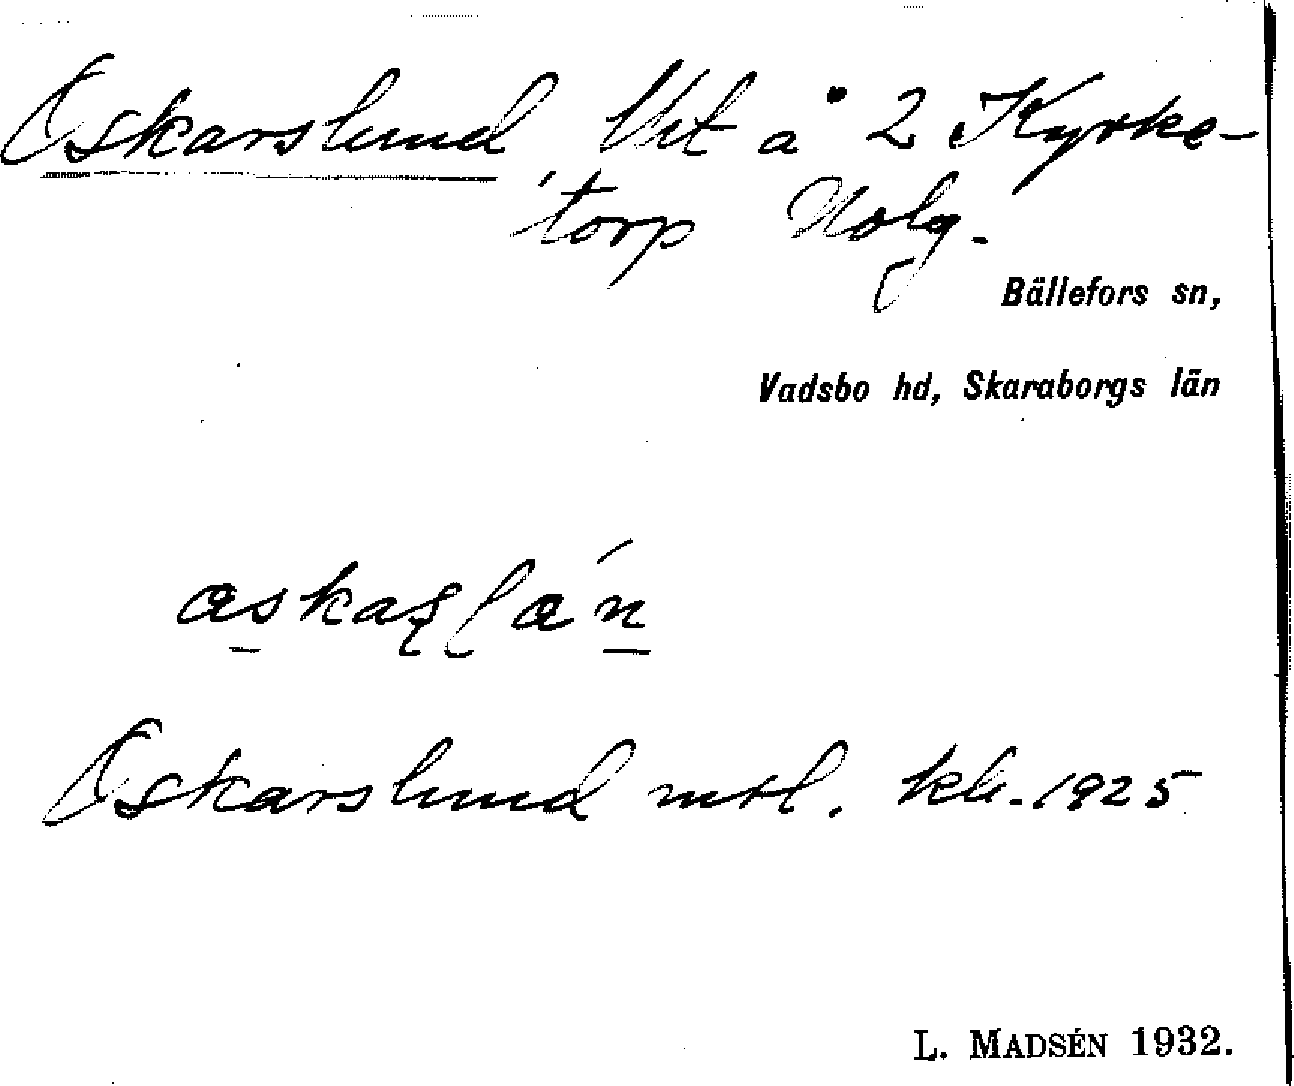 Oskarslund Ut å 2 Kyrke-
torp Nolg.
Bällefors sn,
Vadsbo hd, Skaraborgs län
Oskarslund mtl. 1925
L. MADSÉN 1932.